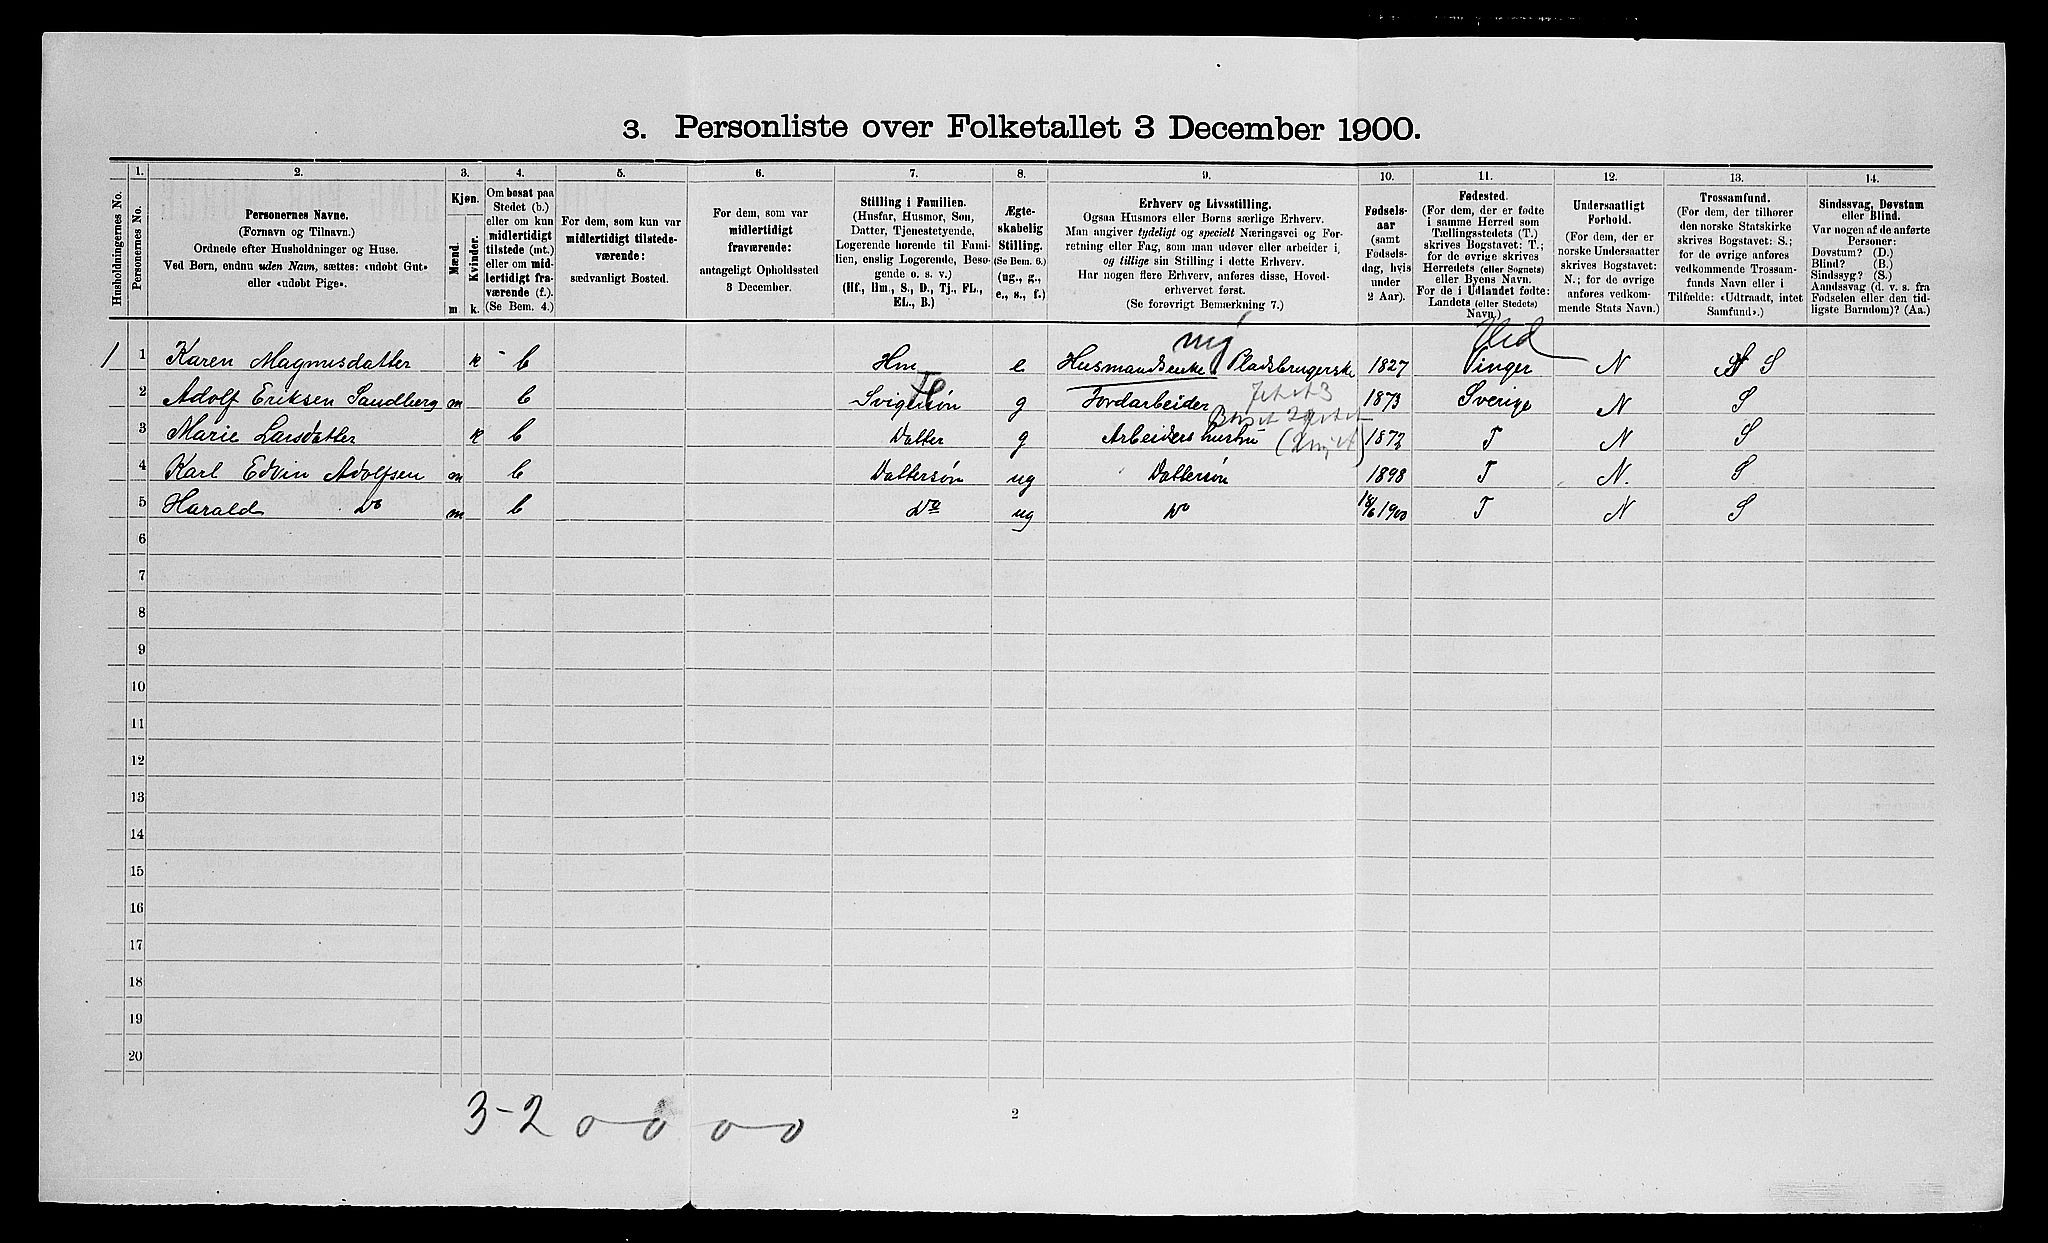 3. Personliste over Folketallet 3 December 1900.
Husholdningernes No.
1.
Personernes No.
2.
Personernes Navne.
(Fornavn og Tilnavn.)
Ordnede efter Husholdninger og Huse.
Ved Børn, endnu uden Navn, sættes: «udøbt Gut»
eller «udøbt Pige».
3.
Kjøn.
Mænd.
Kvinder.
m k.
4.
Om bosat paa
Stedet (b.)
eller om kun
midlertidigt
tilstede (mt.)
eller om mid-
lertidigt fra-
værende (f.).
(Se Bem. 4.)
5.
For dem, som kun var
midlertidigt tilstede-
værende:
sædvanligt Bosted.
6.
For dem, som var
midlertidigt
fraværende:
antageligt Opholdssted
3 December.
7.
Stilling i Familien.
(Husfar, Husmor, Søn,
Datter, Tjenestetyende,
Logerende hørende til Fami-
lien, enslig Logerende, Besø-
gende o. s. v.)
(Hf., Hm., S., D., Tj., FL.,
EL., B.)
8.
Ægte-
skabelig
Stilling.
(Se Bem. 6.)
(ug., g.,
e., s., f.)
9.
Erhverv og Livsstilling.
Ogsaa Husmors eller Børns særlige Erhverv.
Man angiver tydeligt og specielt Næringsvei og For-
retning eller Fag, som man udøver eller arbeider i,
og tillige sin Stilling i dette Erhverv.
Har nogen flere Erhverv, anføres disse, Hoved-
erhvervet først.
(Se forøvrigt Bemærkning 7.)
10.
Fødsels-
aar
(samt
Fødsels-
dag, hvis
under
2 Aar).
11.
Fødested.
(For dem, der er fødte
i samme Herred som
Tællingsstedets (T.)
skrives Bogstavet: T.;
for de øvrige skrives
Herredets (eller Sognets)
eller Byens Navn.
For de i Udlandet fødte:
Landets (eller Stedets)
Navn.)
12.
Undersaatligt
Forhold.
(For dem, der er
norske Undersaatter
skrives Bogstavet:
N.; for de øvrige
anføres vedkom-
mende Stats Navn.)
13.
Trossamfund.
(For dem, der tilhører
den norske Statskirke
skrives Bogstavet: S.;
for de øvrige anføres
vedkommende Trossam-
funds Navn eller i
Tilfælde: «Udtraadt, intet
Samfund».)
14.
Sindssvag, Døvstum
eller Blind.
Var nogen af de anførte
Personer:
Døvstum? (D.)
Blind? (B.)
Sindssyg? (S.)
Aandssvag (d. v. s. fra
Fødselen eller den tid-
ligste Barndom)? (Aa.)
1 1 Karen Magnusdatter k b Hm e Husmandsenke Pladsbrugerske 1827 Vinger N S
2 Adolf Eriksen Sandberg m b Svigersøn g Jordarbeider 1873 Sverige N S
3 Marie Larsdatter k b Datter g Arbeiders hustru 1872 T N S
4 Karl Edvin Adolfsen m b Dattersøn ug Dattersøn 1898 T N. S
5 Harald Do m b Do ug Do 18/6 1900 T N S
6
7
8
9
10
11
12
13
14
15
16
17
18
19
20
3-2 0 0 0 0
2